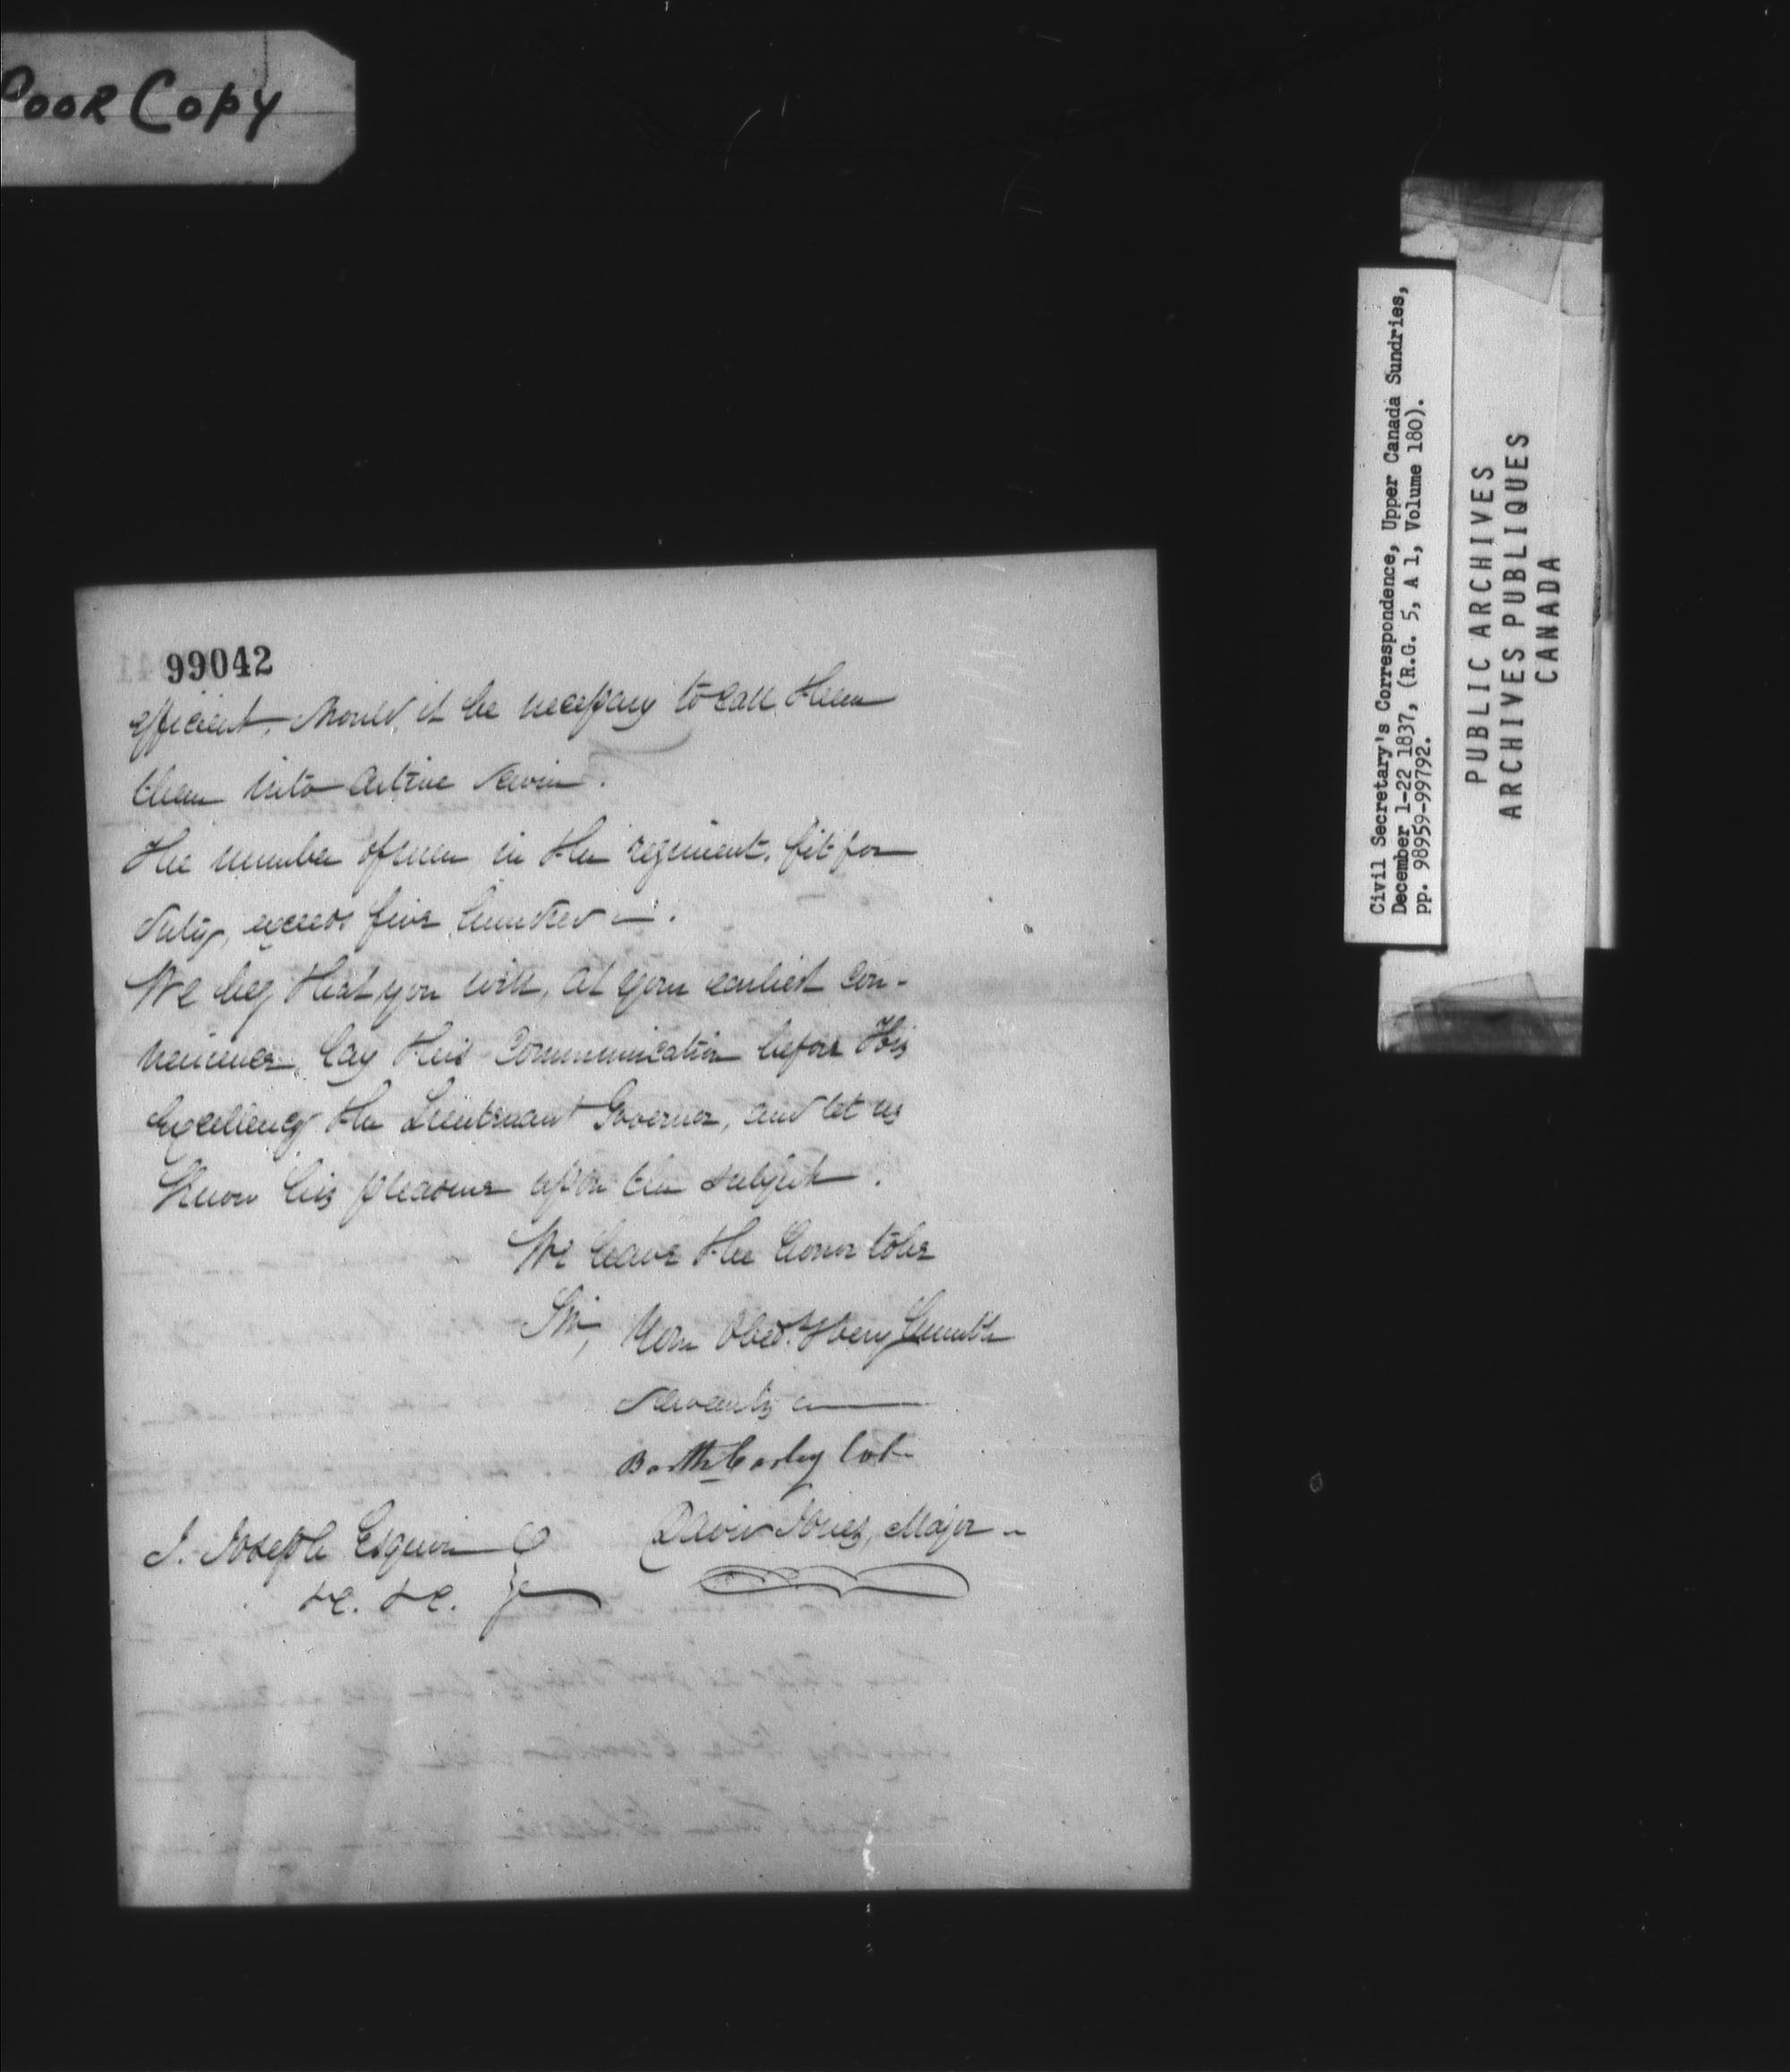 Poor Copy
99042
efficient, should it be necessary to call them
them into active service.
The number of men in the regiment, fit for
duty, exceeds five hundred —.
We beg that you will, at your earliest con-
venience, lay this communication before His
Excellency the Lieutenant Governor, and let us
know his pleasure upon the subject.
We have the honor to be
Sir, Your Obed. & very humble
servants
Barth Carley Col.
David Jones, Major
J. Joseph Esquire
&c. &c. &c
Civil Secretary's Correspondence, Upper Canada Sundries,
December 1-22 1837, (R.G. 5, A 1, Volume 180).
pp. 98959-99792.
PUBLIC ARCHIVES
ARCHIVES PUBLIQUES
CANADA